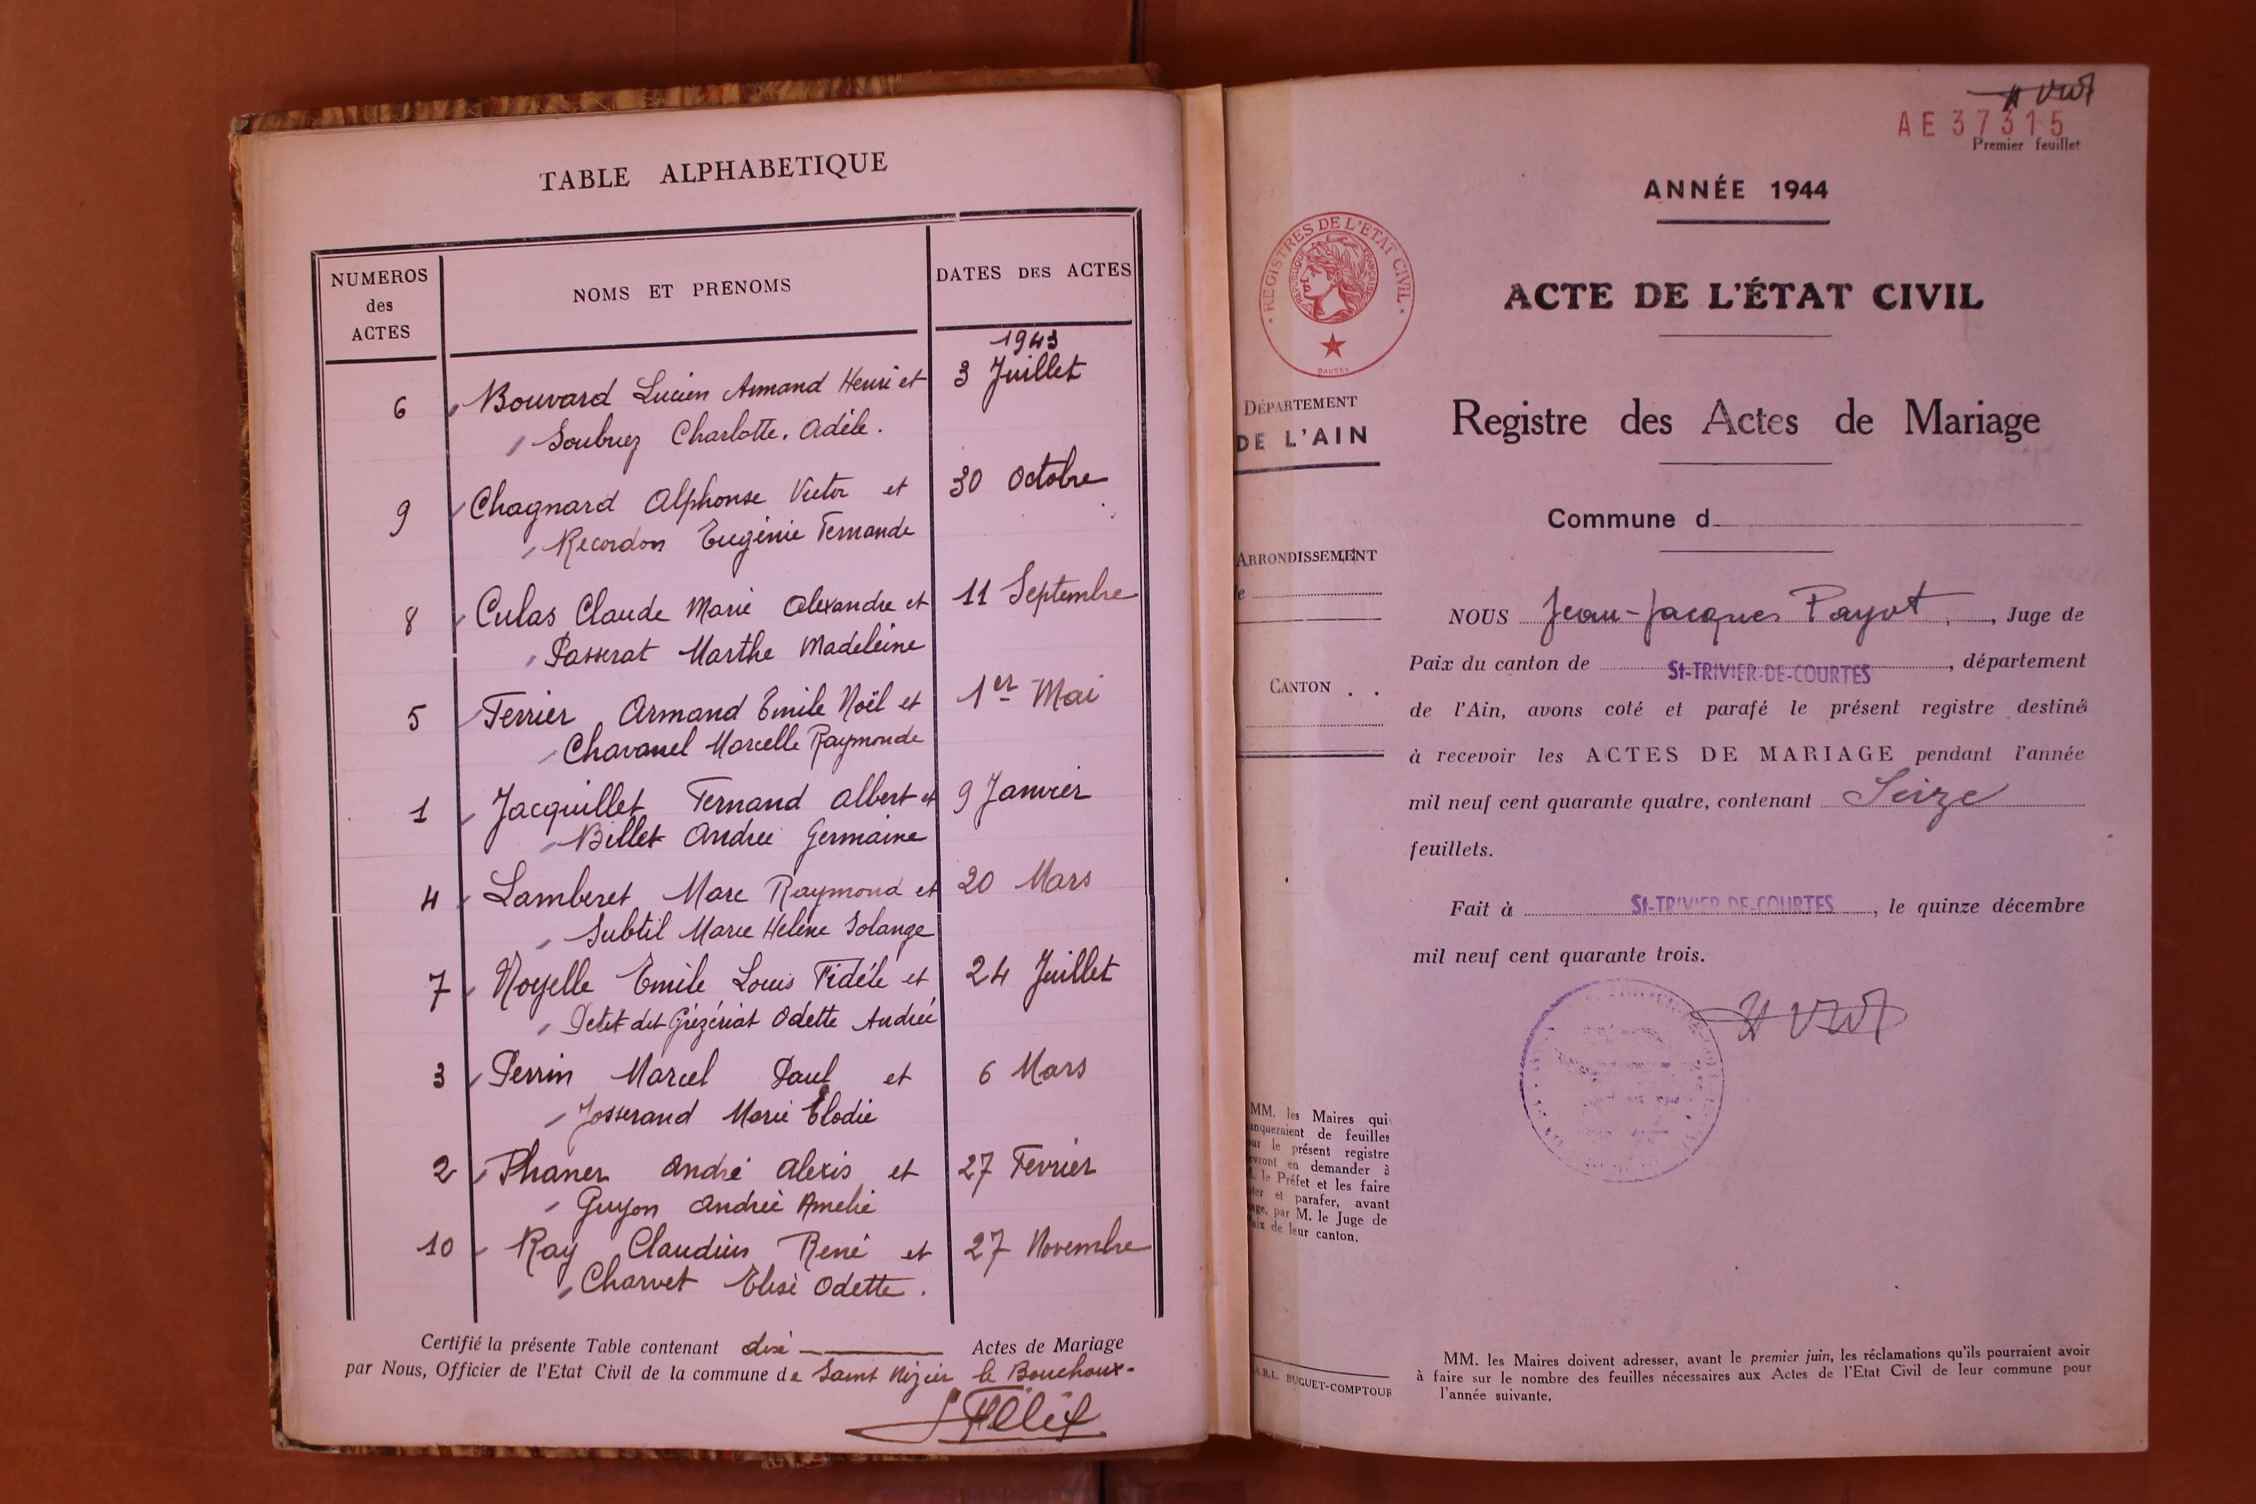 TABLE ALPHABETIQUE
NUMEROS
des
ACTES
NOMS ET PRENOMS
DATES DES ACTES
1943
6 Bouvard Lucien Armand Henri et 3 Juillet
Soubriez Charlotte. Adèle.
9 Chagnard Alphonse Victor et 30 Octobre
Recordon Eugénie Fernande
8 Culas Claude Marie Alexandre et 11 Septembre
Passerat Marthe Madeleine
5 Ferrier Armand Emile Noël et 1er Mai
Chavanel Marcelle Raymonde
1 Jacquillet Fernand Albert et 9 Janvier
Billet Andrée Germaine
4 Lamberet Marc Raymond et 20 Mars
Subtil Marie Hélène Solange
7 Noyelle Emile Louis Fidéle et 24 Juillet
Petit dit Grézériat Odette Andrée
3 Perrin Marcel Paul et 6 Mars
Josserand Marie Elodie
2 Phaner André Alexis et 27 Fevrier
Guyon Andrée Amelie
10 Ray Claudius René et 27 Novembre
Charvet Elise Odette.
Certifié la présente Table contenant dix Actes de Mariage
par Nous, Officier de l'Etat Civil de la commune de Saint Nizier le Bouchoux-
AE 37315
Premier feuillet
ANNÉE 1944
REGISTRES DE L'ETAT CIVIL
ACTE DE L'ÉTAT CIVIL
DÉPARTEMENT
DE L'AIN
Registre des Actes de Mariage
Commune d
ARRONDISSEMENT
NOUS Jean-Jacques Payot, Juge de
Paix du canton de St-TRIVIER-DE-COURTES, département
CANTON
de l'Ain, avons coté et parafé le présent registre destiné
à recevoir les ACTES DE MARIAGE pendant l'année
mil neuf cent quarante quatre, contenant Seize
feuillets.
Fait à St-TRIVIER-DE-COURTES, le quinze décembre
mil neuf cent quarante trois.
MM. les Maires qui
de feuilles
le présent registre
en demander à
le Préfet et les faire
et parafer, avant
par M. le Juge de
de leur canton.
BUGUET-COMPTOUR
MM. les Maires doivent adresser, avant le premier juin, les réclamations qu'ils pourraient avoir
à faire sur le nombre des feuilles nécessaires aux Actes de l'Etat Civil de leur commune pour
l'année suivante.